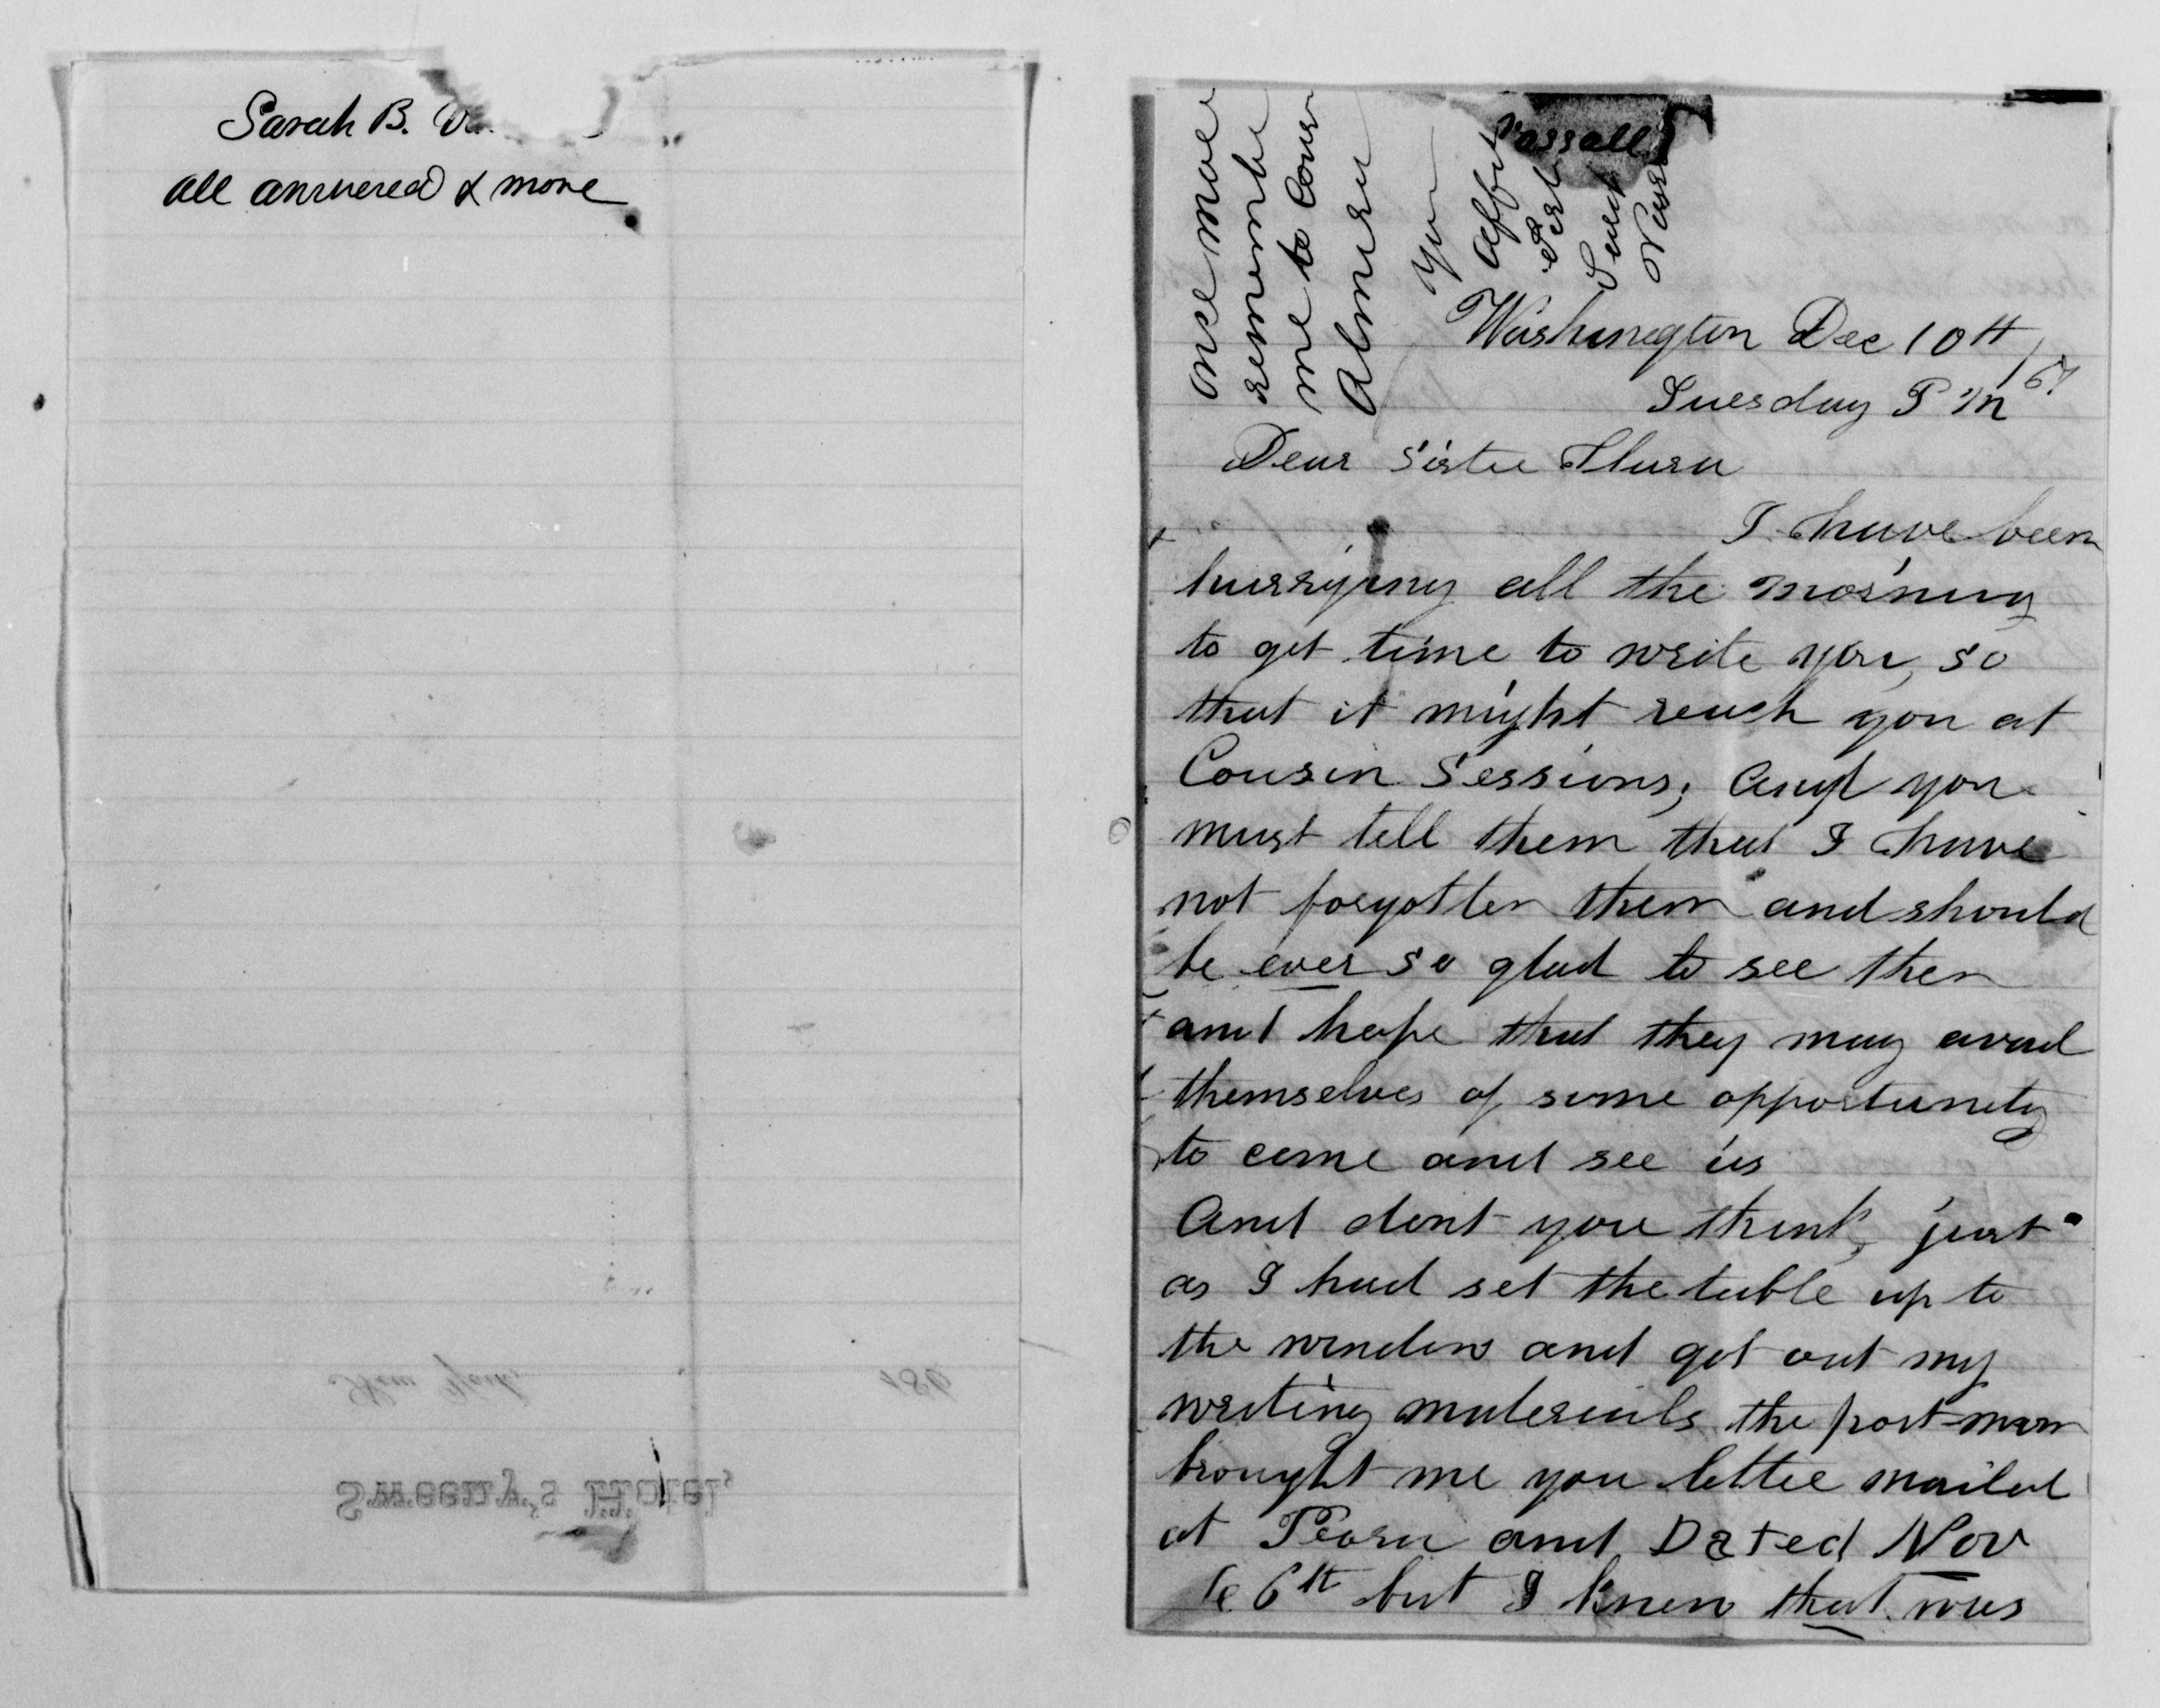 Sarah B.
all answered & more
New York,
186
Sweeny's Hotel,
once more
remember
me to Cousin
Almira
Your
Aff
Sist
Vassall
Washington Dec 10th / 67
Tuesday P M
Dear Sister Clara
I have been
hurrying all the morning
to get time to write you, so
that it might reach you at
Cousin Sessions; And you
must tell them that I have
not forgotten them and should
be ever so glad to see them
and hope that they may avail
themselves of some opportunity
to come and see us
And dont you think, just
as I had set the table up to
the window and got out my
writing materials the post man
brought me you letter mailed
at Peoria and Dated Nov
6th but I knew that was